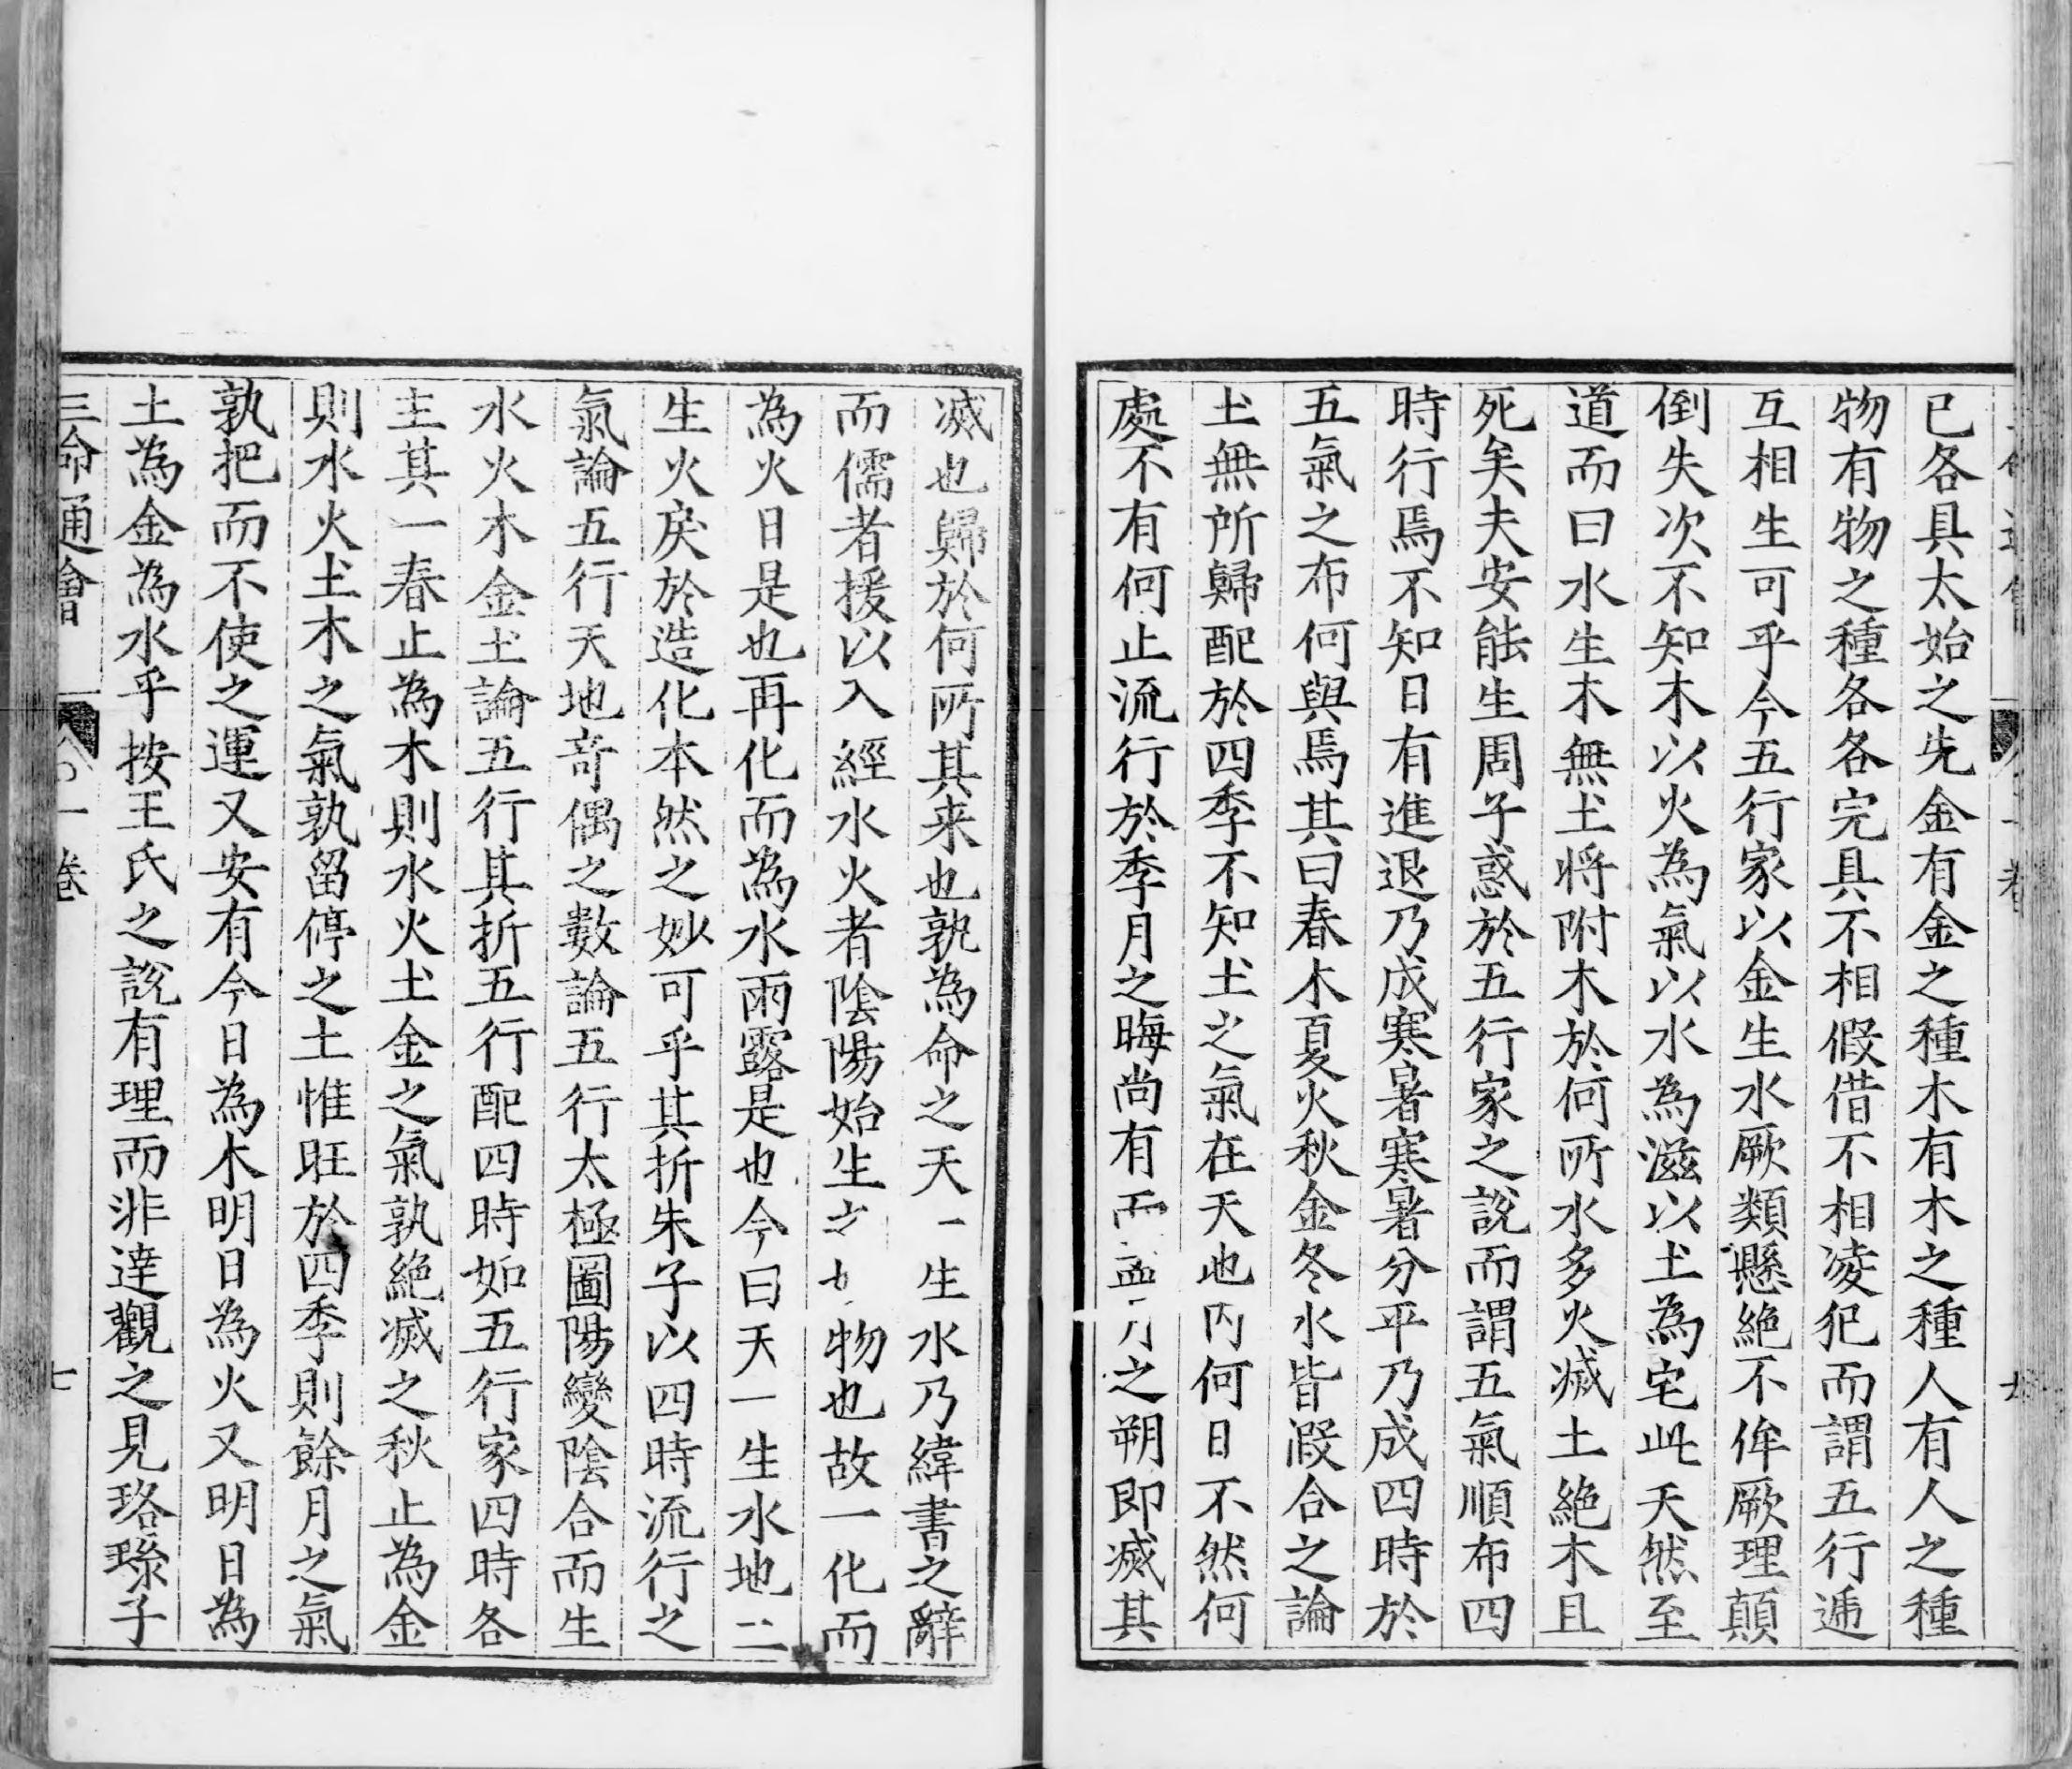 已各具太始之先金有金之種木有木之種人有人之種
物有物之種各各完具不相假借不相凌犯而謂五行逓
互相生可乎今五行家以金生水厥類懸絶不侔厥理顛
倒失次不知木以火為氣以水為滋以土為宅此天然至
道而曰水生木無土将附木於何所水多火滅土絶木且
死矣夫安能生周子惑於五行家之說而謂五氣順布四
時行焉不知日有進退乃成寒暑寒暑分平乃成四時於
五氣之布何與焉其曰春木夏火秋金冬水皆假合之論
土無所歸配於四季不知土之氣在天也内何日不然何
處不有何止流行於季月之晦尚有 之朔即滅其
滅也歸於何所其来也孰為命之天一生水乃緯書之辭
而儒者援以入經水火者陰陽始生之 物也故一化而
為火日是也再化而為水雨露是也今曰天一生水地二
生火戾於造化本然之妙可乎其折朱子以四時流行之
氣論五行天地竒偶之數論五行太極圖陽變陰合而生
水火木金土論五行其折五行配四時如五行家四時各
主其一春止為木則水火土金之氣孰絶滅之秋止為金
則水火土木之氣孰留停之土惟旺於四季則餘月之氣
孰把而不使之運又安有今日為木明日為火又明日為
土為金為水乎按王氏之說有理而非達觀之見珞琭子
三命通會 卷一 七